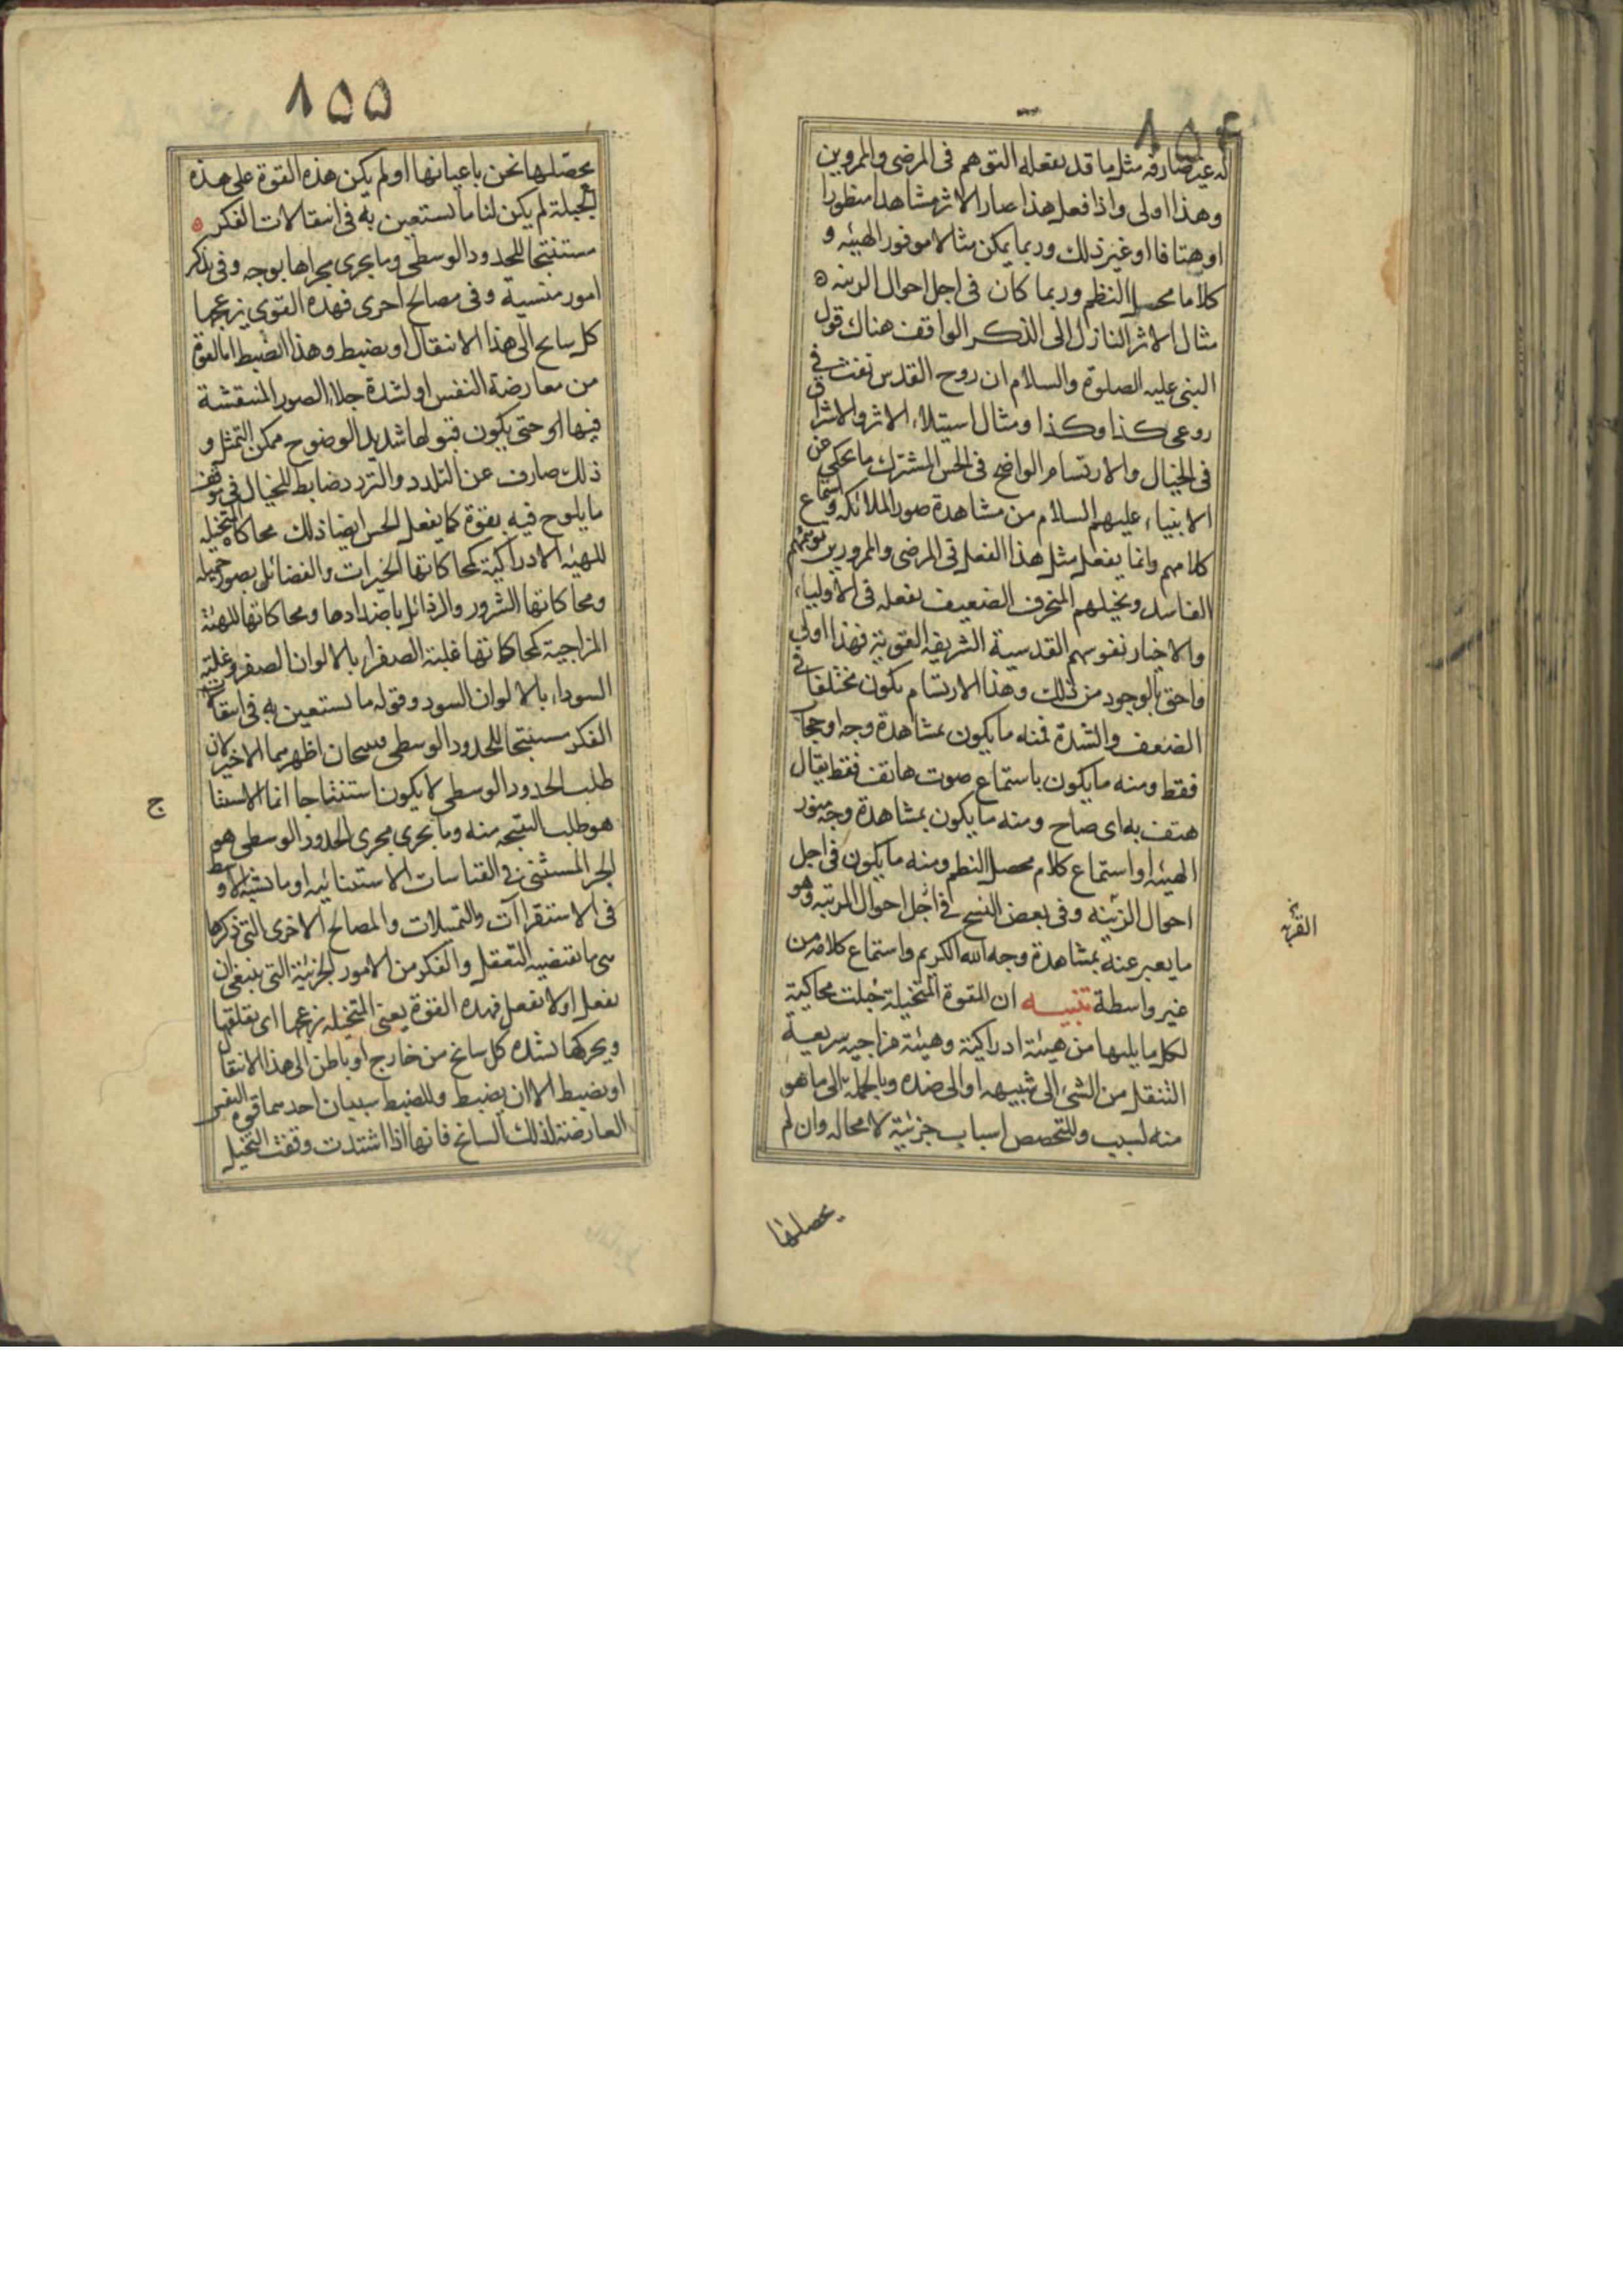 ٨٥٤
له غير صارفه مثل ما قد يفعله التوهم فى المرضى والممروين
وهذا اولى واذا فعل هذا صار الاثر مشاهدا منظورا
او هتافا او غير ذلك وربما يمكن مثالا موفور الهيئه و
كلاما محصل النظم وربما كان فى اجل احوال الزينه ه
مثال الاثر النازل الى الذكر الواقف هناك قول
النبى عليه الصلوة والسلام ان روح القدس نفث فى
روعى كذا وكذا ومثال استيلاء الاثر والاشراق
فى الخيال والارتسام الواضح فى الحس المشترك ما يحكى عن
الانبياء عليهم السلام من مشاهدة صور الملائكه واستماع
كلامهم وانما يفعل مثل هذا الفعل فى المرضى والممرورين توهمهم
الفاسد وتخيلهم المنحرف الضعيف يفعله فى الاولياء
والاخيار نفوسهم القدسية الشريفه القوية فهذا اولى
واحق بالوجود من ذلك وهذا الارتسام يكون مختلفا فى
الضعف والشدة فمنه ما يكون بمشاهدة وجه او حجاب
فقط ومنه ما يكون باستماع صوت هاتف فقط يقال
هتف به اى صاح ومنه ما يكون بمشاهدة وجه موفور
الهيئه او استماع كلام محصل النظم ومنه ما يكون فى اجل
احوال الزينه وفى بعض النسخ فى اجل احوال المرتبه وهو
ما يعبر عنه بمشاهدة وجه الله الكريم واستماع كلامه من
غير واسطة تنبيه ان القوة المتخيلة جبلت محاكية
لكل ما يليها من هيئة ادراكية وهيئة مزاجيه سريعية
التنقل من الشئ الى شبيهه او الى ضده وبالجملة الى ما هو
منه لسبب وللتخصص اسباب جزئية لا محاله وان لم
يحصلها
٨٥٥
يحصلها نحن باعيانها او لم يكن هذه القوة على هذه
الجبلة لم يكن لنا ما نستعين به فى انتقالات الفكر ه
مستنتجا للحدود الوسطى وما يجرى مجراها بوجه وفى تذكر
امور منسية وفى مصالح اخرى فهذه القوى يزعجها
كل سانح الى هذا الانتقال او يضبط وهذا الضبط اما لقوة
من معارضة النفس او لشدة جلاء الصور المنتقشة
فيها اى حتى يكون قبولها شديد الوضوح ممكن التمثل و
ذلك صارف عن التلدد والتردد ضابط للخيال فى موقف
ما يلوح فيه بقوة كما يفعل الحس ايضا ذلك محاكاة المتخيله
للهيئه الادراكية كمحاكاتها الخيرات والفضائل بصور جميله
ومحاكاتها الشرور والرذائل باضدادها ومحاكاتها للهيئة
المزاجية كمحاكاتها غلبة الصفراء بالالوان الصفر وغلبته
السوداء بالالوان السود وقوله ما نستعين به فى انتقالات
الفكر مستنتجا للحدود الوسطى نسختان اظهرهما الاخير لان
طلب الحدود الوسطى لا يكون استنتاجا انما الاستنتا
ج
هو طلب النتيجه منه وما يجرى مجرى الحدود الوسطى هو
الجزء المستثنى فى القياسات الاستثنائيه او ما يشبه الاوسط
فى الاستقراآت والتمثيلات والمصالح الاخرى التى ذكرها
هى ما تقتضيه التعقل والفكر من الامور الجزئية التى ينبغى ان
يفعل او لا يفعل فهذه القوة يعنى المتخيله يزعجها اى يقلقها
ويحركها بشده كل سانح من خارج او باطن الى هذا الانتقال
او يضبط الا ان يضبط وللضبط سببان احدهما قوة النفس
العارضة لذلك السانح فانها اذا اشتدت وقفت التخيل